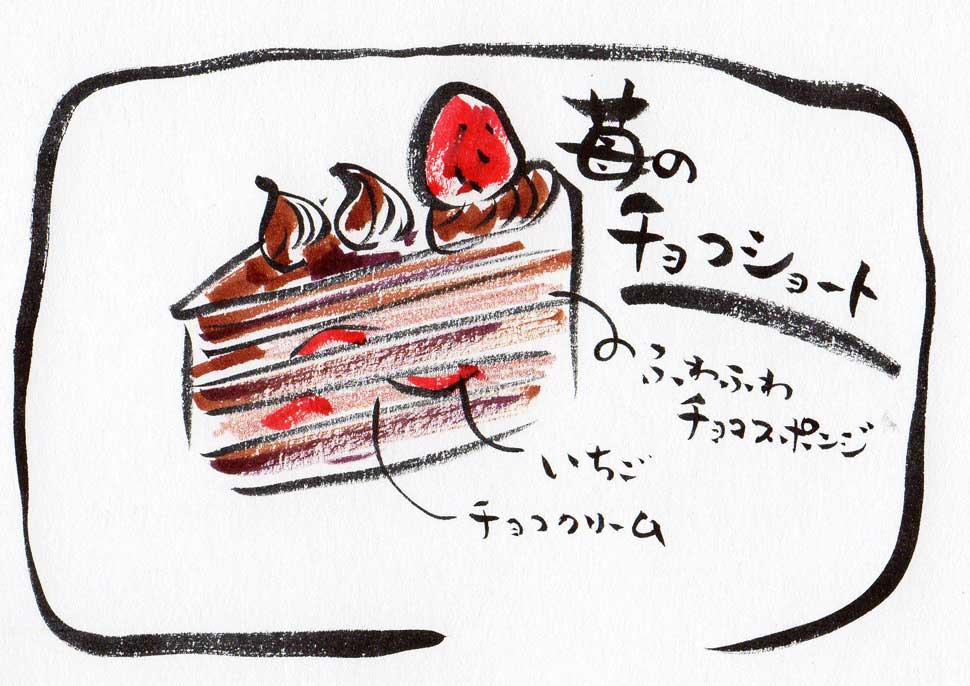 苺の
チョコショート
ふわふわ
チョコスポンジ
いちご
チョコクリーム